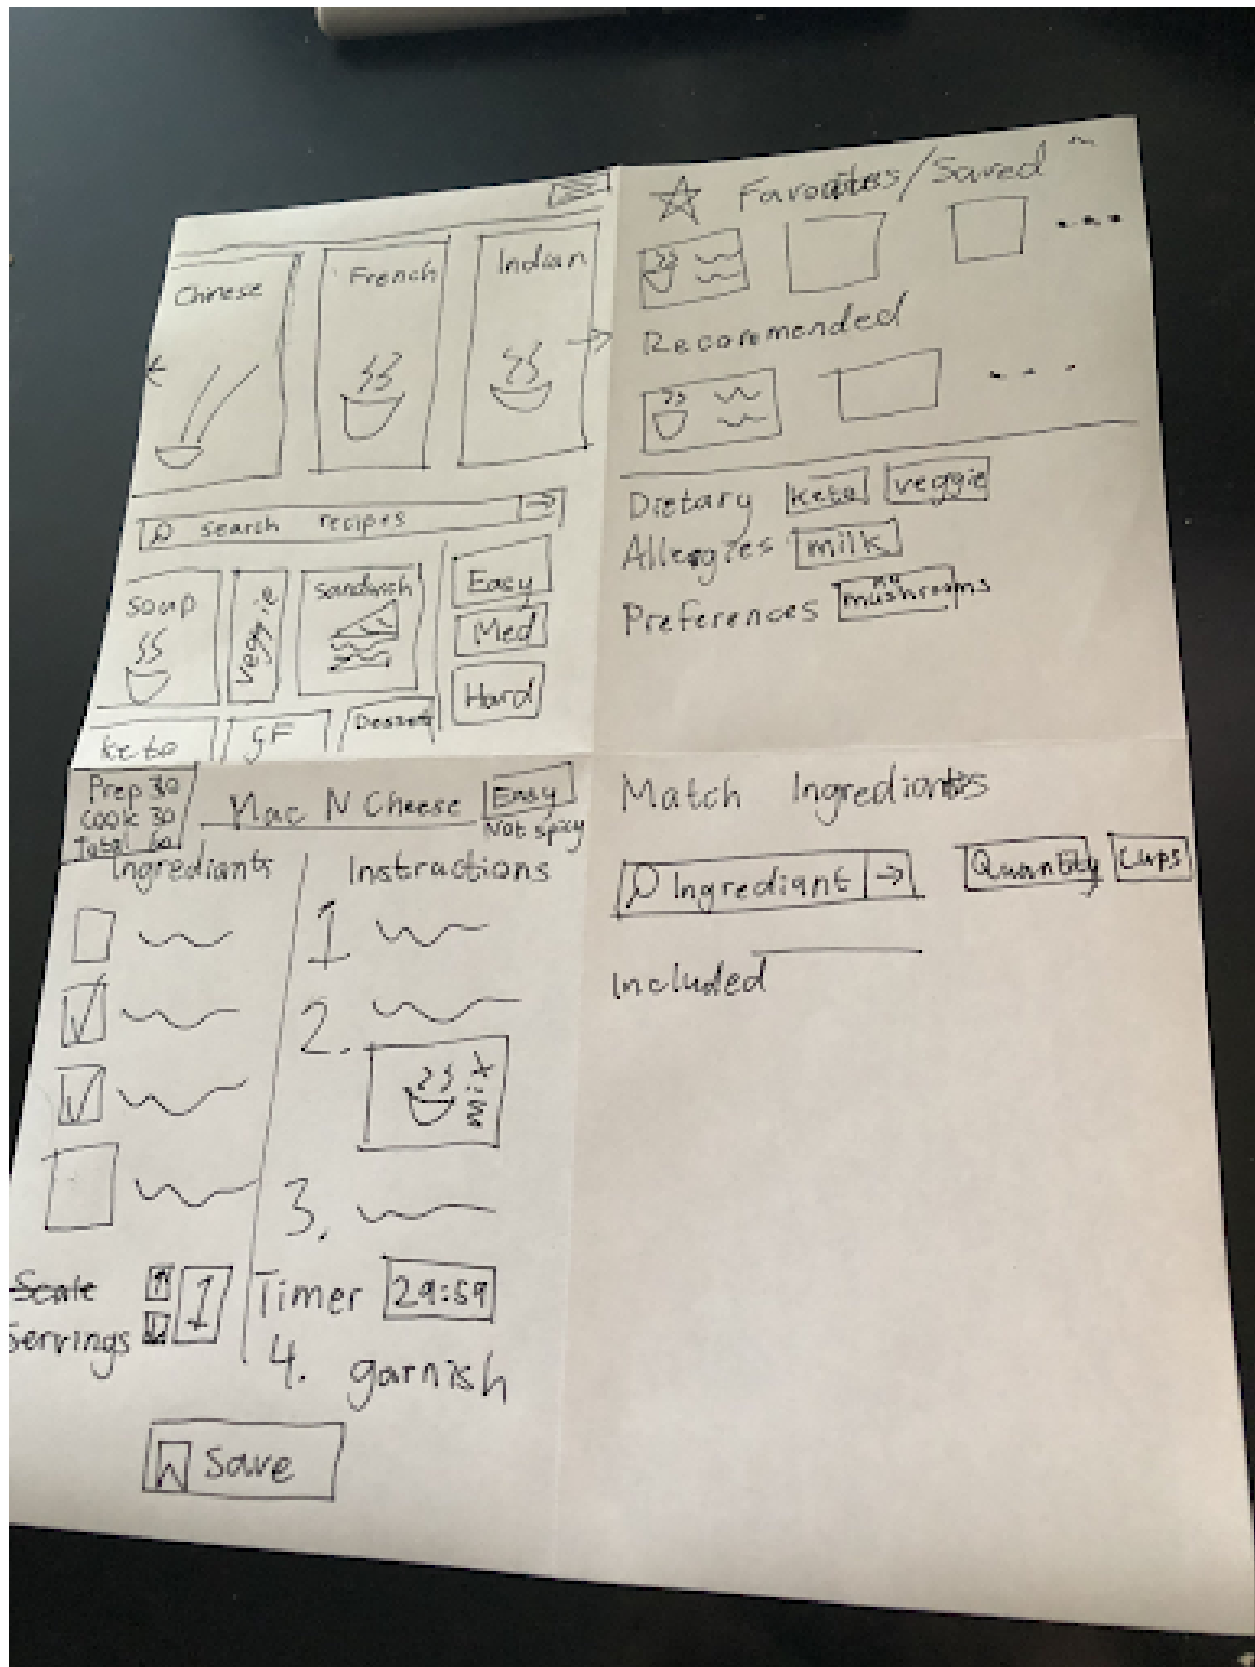 Chinese
French
Indian
search recipes
soup
veggie
Sandwich
Easy
Med
Hard
keto
GF
Dessert
Favorites/Saved
Recommended
Dietary keto veggie
Allergies milk
Preferences no mushrooms
Prep 30
Cook 30
Total 60
Mac N Cheese
Easy
Not spicy
Ingrediants
Instructions
1
2.
Mix
3.
Scale
Servings
1
Timer 29:59
4. garnish
Save
Match Ingrediants
Ingrediant
Quantity
Cups
Included